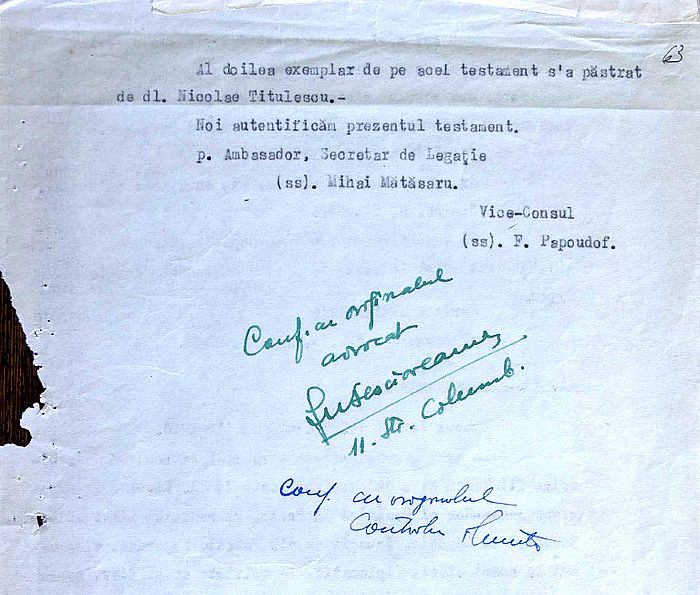 63
Al doilea exemplar de pe acel testament s'a păstrat
de dl. Nicolae Titulescu.-
Noi autentificăm prezentul testament.
p. Ambasador, Secretar de Legaţie
(ss). Mihai Mătăsaru.
Vice-Consul
(ss). F. Papoudof.
Conf. cu originalul
avocat
11. Str. Columb.
Conf. cu originalul